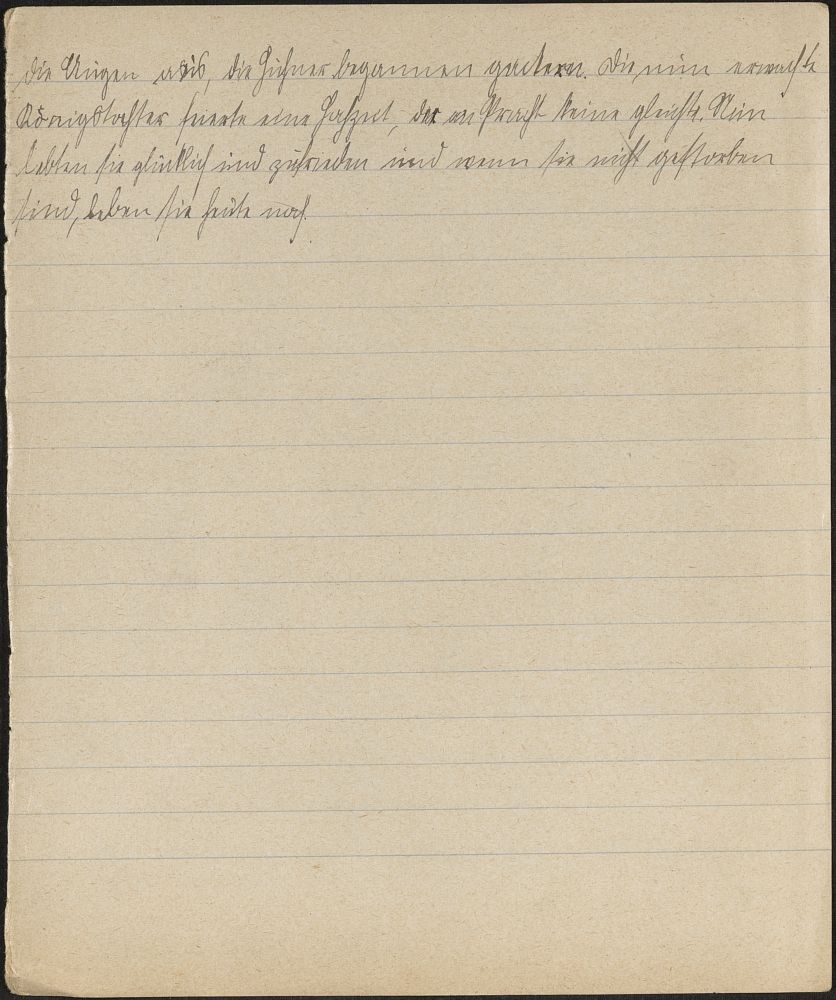 die Augen aus, die Hühner begannen gackern. Die nun erwachte
Königstochter feierte eine Hochzeit, der an Pracht keine gleicht. Nun
lebten sie glücklich und zufrieden und wenn sie nicht gestorben
sind, leben sie heute noch.